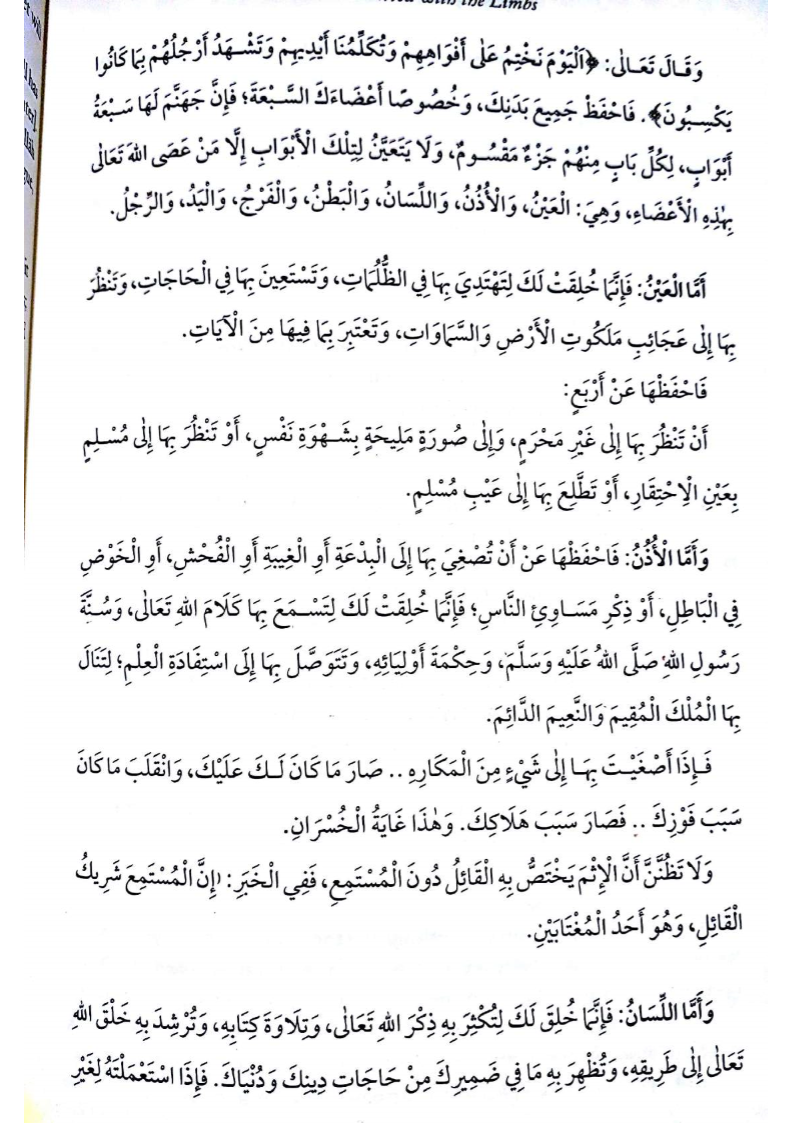 with the Limbs
وَقَالَ تَعَالٰى: ﴿اَلْيَوْمَ نَخْتِمُ عَلٰى أَفْوَاهِهِمْ وَتُكَلِّمُنَا أَيْدِيهِمْ وَتَشْهَدُ أَرْجُلُهُمْ بِمَا كَانُوا
يَكْسِبُونَ﴾. فَاحْفَظْ جَمِيعَ بَدَنِكَ، وَخُصُوصًا أَعْضَاءَكَ السَّبْعَةَ؛ فَإِنَّ جَهَنَّمَ لَهَا سَبْعَةُ
أَبْوَابٍ، لِكُلِّ بَابٍ مِنْهُمْ جَزْءٌ مَقْسُومٌ، وَلَا يَتَعَيَّنُ لِتِلْكَ الْأَبْوَابِ إِلَّا مَنْ عَصَى اللهَ تَعَالٰى
بِهٰذِهِ الْأَعْضَاءِ، وَهِيَ: الْعَيْنُ، وَالْأُذُنُ، وَاللِّسَانُ، وَالْبَطْنُ، وَالْفَرْجُ، وَالْيَدُ، وَالرِّجْلُ.
أَمَّا الْعَيْنُ: فَإِنَّمَا خُلِقَتْ لَكَ لِتَهْتَدِيَ بِهَا فِي الظُّلُمَاتِ، وَتَسْتَعِينَ بِهَا فِي الْحَاجَاتِ، وَتَنْظُرَ
بِهَا إِلٰى عَجَائِبِ مَلَكُوتِ الْأَرْضِ وَالسَّمَاوَاتِ، وَتَعْتَبِرَ بِمَا فِيهَا مِنَ الْآيَاتِ.
فَاحْفَظْهَا عَنْ أَرْبَعٍ:
أَنْ تَنْظُرَ بِهَا إِلٰى غَيْرِ مَحْرَمٍ، وَإِلٰى صُورَةٍ مَلِيحَةٍ بِشَهْوَةِ نَفْسٍ، أَوْ تَنْظُرَ بِهَا إِلٰى مُسْلِمٍ
بِعَيْنِ الْاِحْتِقَارِ، أَوْ تَطَّلِعَ بِهَا إِلٰى عَيْبِ مُسْلِمٍ.
وَأَمَّا الْأُذُنُ: فَاحْفَظْهَا عَنْ أَنْ تُصْغِيَ بِهَا إِلَى الْبِدْعَةِ أَوِ الْغِيبَةِ أَوِ الْفُحْشِ، أَوِ الْخَوْضِ
فِي الْبَاطِلِ، أَوْ ذِكْرِ مَسَاوِئِ النَّاسِ؛ فَإِنَّمَا خُلِقَتْ لَكَ لِتَسْمَعَ بِهَا كَلَامَ اللهِ تَعَالٰى، وَسُنَّةَ
رَسُولِ اللهِ صَلَّى اللهُ عَلَيْهِ وَسَلَّمَ، وَحِكْمَةَ أَوْلِيَائِهِ، وَتَتَوَصَّلَ بِهَا إِلَى اسْتِفَادَةِ الْعِلْمِ؛ لِتَنَالَ
بِهَا الْمُلْكَ الْمُقِيمَ وَالنَّعِيمَ الدَّائِمَ.
فَإِذَا أَصْغَيْتَ بِهَا إِلٰى شَيْءٍ مِنَ الْمَكَارِهِ .. صَارَ مَا كَانَ لَكَ عَلَيْكَ، وَانْقَلَبَ مَا كَانَ
سَبَبَ فَوْزِكَ .. فَصَارَ سَبَبَ هَلَاكِكَ. وَهٰذَا غَايَةُ الْخُسْرَانِ.
وَلَا تَظُنَّنَّ أَنَّ الْإِثْمَ يَخْتَصُّ بِهِ الْقَائِلُ دُونَ الْمُسْتَمِعِ، فَفِي الْخَبَرِ: «إِنَّ الْمُسْتَمِعَ شَرِيكُ
الْقَائِلِ، وَهُوَ أَحَدُ الْمُغْتَابَيْنِ.
وَأَمَّا اللِّسَانُ: فَإِنَّمَا خُلِقَ لَكَ لِتُكْثِرَ بِهِ ذِكْرَ اللهِ تَعَالٰى، وَتِلَاوَةَ كِتَابِهِ، وَتُرْشِدَ بِهِ خَلْقَ اللهِ
تَعَالٰى إِلٰى طَرِيقِهِ، وَتُظْهِرَ بِهِ مَا فِي ضَمِيرِكَ مِنْ حَاجَاتِ دِينِكَ وَدُنْيَاكَ. فَإِذَا اسْتَعْمَلْتَهُ لِغَيْرِ